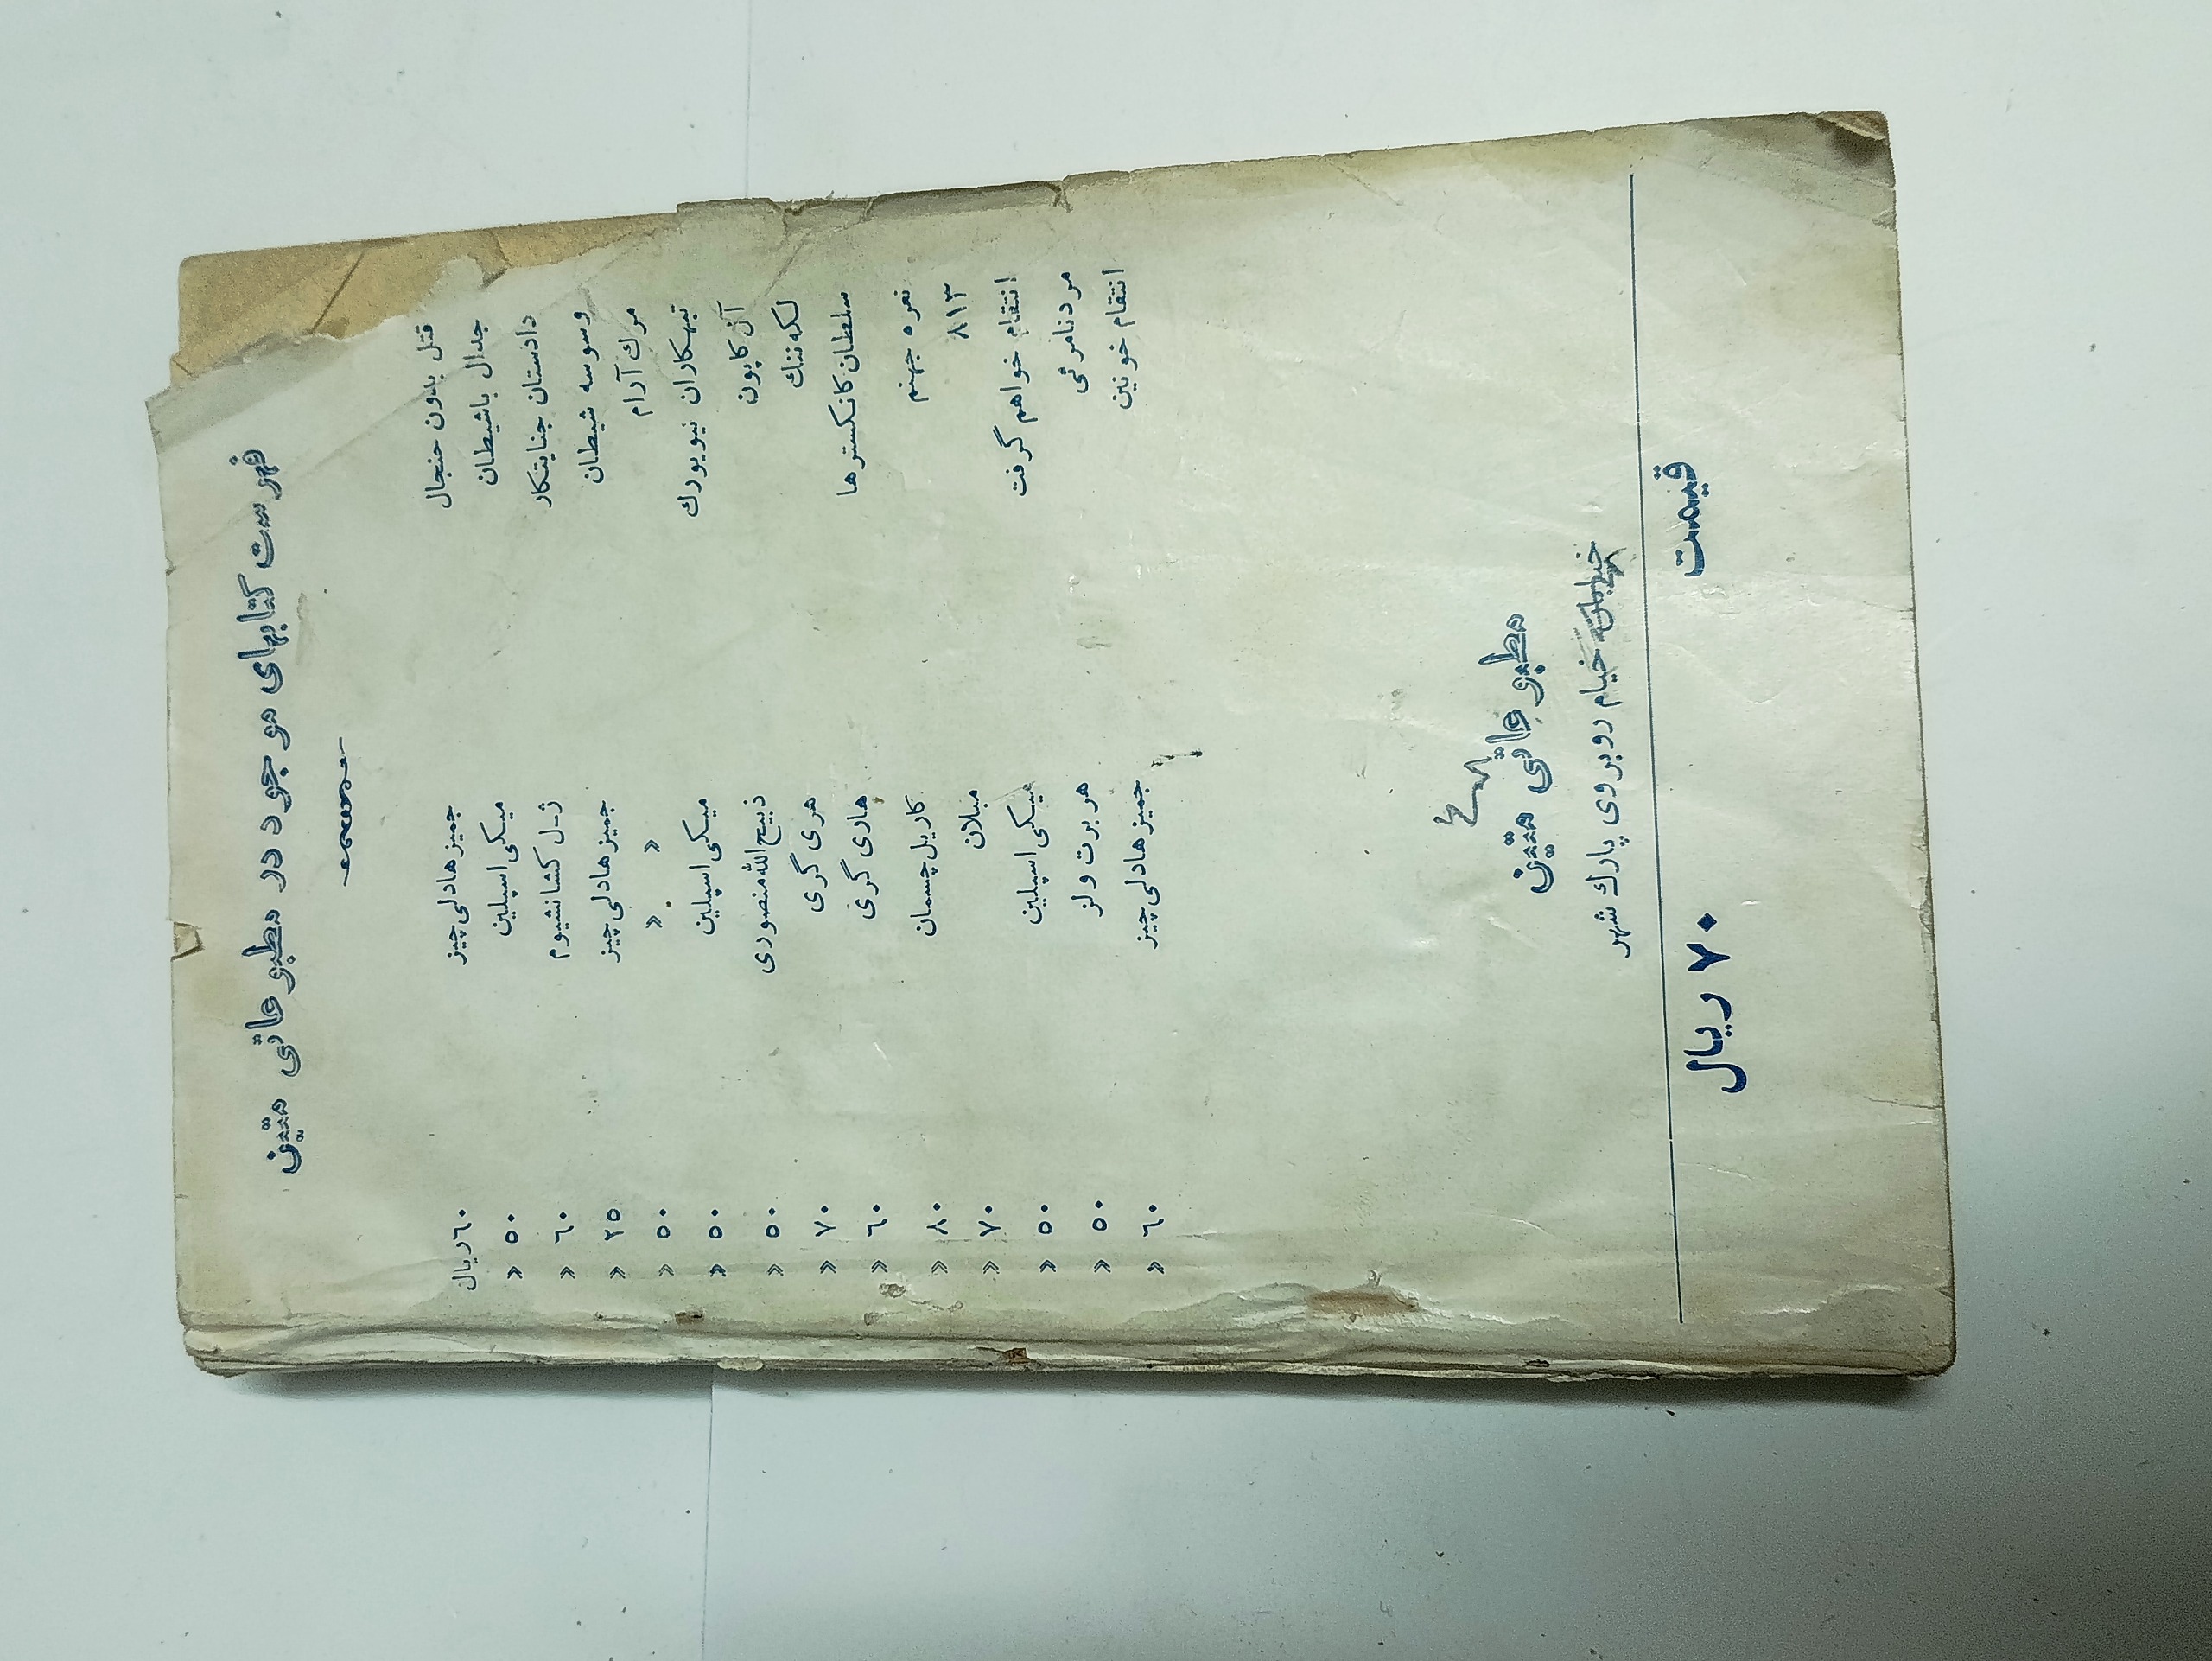 فهرست کتابهای موجود در مطبوعاتی متین
قتل بدون جنجال جمیزهادلی چیز ٦٠ریال
جدال باشیطان میکی اسپلین ٥٠ »
دادستان جنایتکار ژ-ل کشانشیوم ٦٠ »
وسوسه شیطان جمیزهادلی چیز ٢٥ »
مرك آرام » » ٥٠ »
تبهکاران نیویورك میکی اسپلین ٥٠ »
آل کاپون ذبیح الله منصوری ٥٠ »
لکه ننك هری گری ٧٠ »
سلطان کانکسترها هاری گری ٦٠ »
نعره جهنم کاریل چسمان ٨٠ »
٨١٣ مبلان ٧٠ »
انتقام خواهم گرفت میکی اسپلین ٥٠ »
مردنامرئی هربرت ولز ٥٠ »
انتقام خونین جمیزهادلی چیز ٦٠ »
مطبوعاتی متین
خیابان خیام روبروی پارك شهر
قیمت ٧٠ ریال